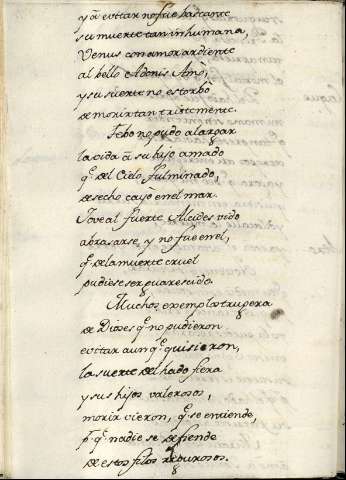 y a evitar no fue bastante
su muerte tan inhumana,
Venus con amor ardiente
al bello Adonis Amò,
y su suerte no estorbò
de morir tan tristemente.
Febo no pudo alargar
la vida a su hijo amado
q̃ del Cielo fulminado,
desecho cayò en el mar.
Jove al fuerte Alcides vido
abrasarse, y no fue en el,
q̃ de la muerte cruel
pudiese ser guarescido.
Muchos exemplos trugera
de Dioses q̃ no pudieron
evitar aunq̃ quisieron,
la suerte del hado fiera
y sus hijos valerosos,
morir vieron, q̃ se entiende,
p̃q̃ nadie se defiende
de estos filos rigurosos.